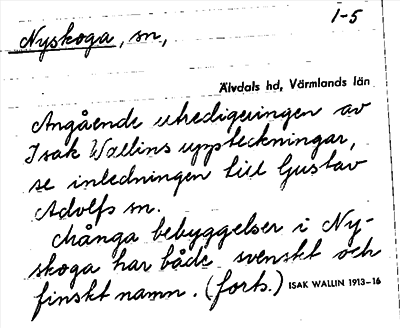 1-5
Nyskoga, sn,
Älvdals hd, Värmlands län
Angående utredigeringen av
Isak Wallins uppteckningar,
se inledningen till Gustav
Adolfs sn.
Många bebyggelser i Ny-
skoga har både svenskt och
finskt namn. (forts.) ISAK WALLIN 1913-16